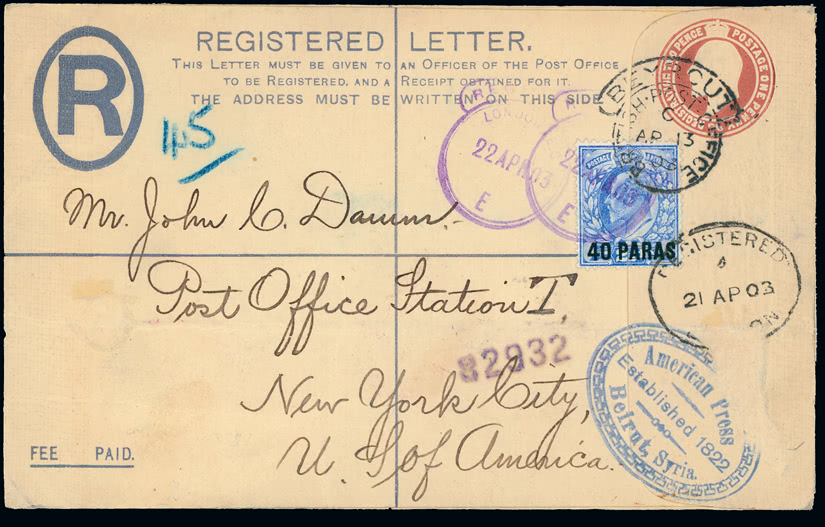 REGISTERED LETTER.
THIS LETTER MUST BE GIVEN TO AN OFFICER OF THE POST OFFICE
TO BE REGISTERED, AND A RECEIPT OBTAINED FOR IT.
THE ADDRESS MUST BE WRITTEN ON THIS SIDE.
R
45
POSTAGE ONE PENNY
REGISTRATION TWO PENCE
BEYROUT
BRITISH POST OFFICE
AP 13
LONDON
22 APR 03
E
22 APR 03
E
POSTAGE
40 PARAS
REGISTERED
21 AP 03
Mr. John C. Damm.
Post Office Station T,
New York City,
U. S of America.
82932
American Press
Established 1822
Beirut, Syria.
FEE PAID.